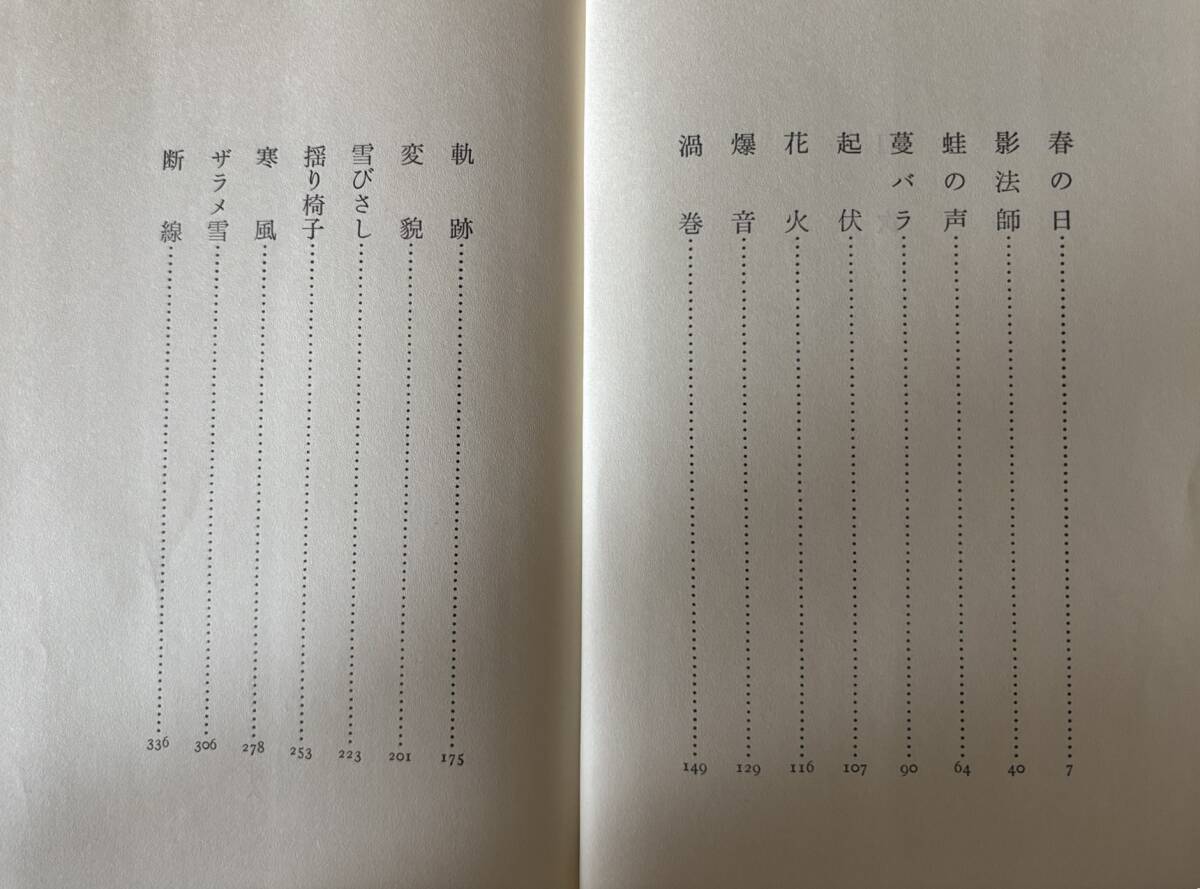 春の日……………………7
影法師……………………40
蛙の声……………………64
蔓バラ……………………90
起伏……………………107
花火……………………116
爆音……………………129
渦巻……………………149
軌跡……………………175
変貌……………………201
雪びさし……………………223
揺り椅子……………………253
寒風……………………278
ザラメ雪……………………306
断線……………………336